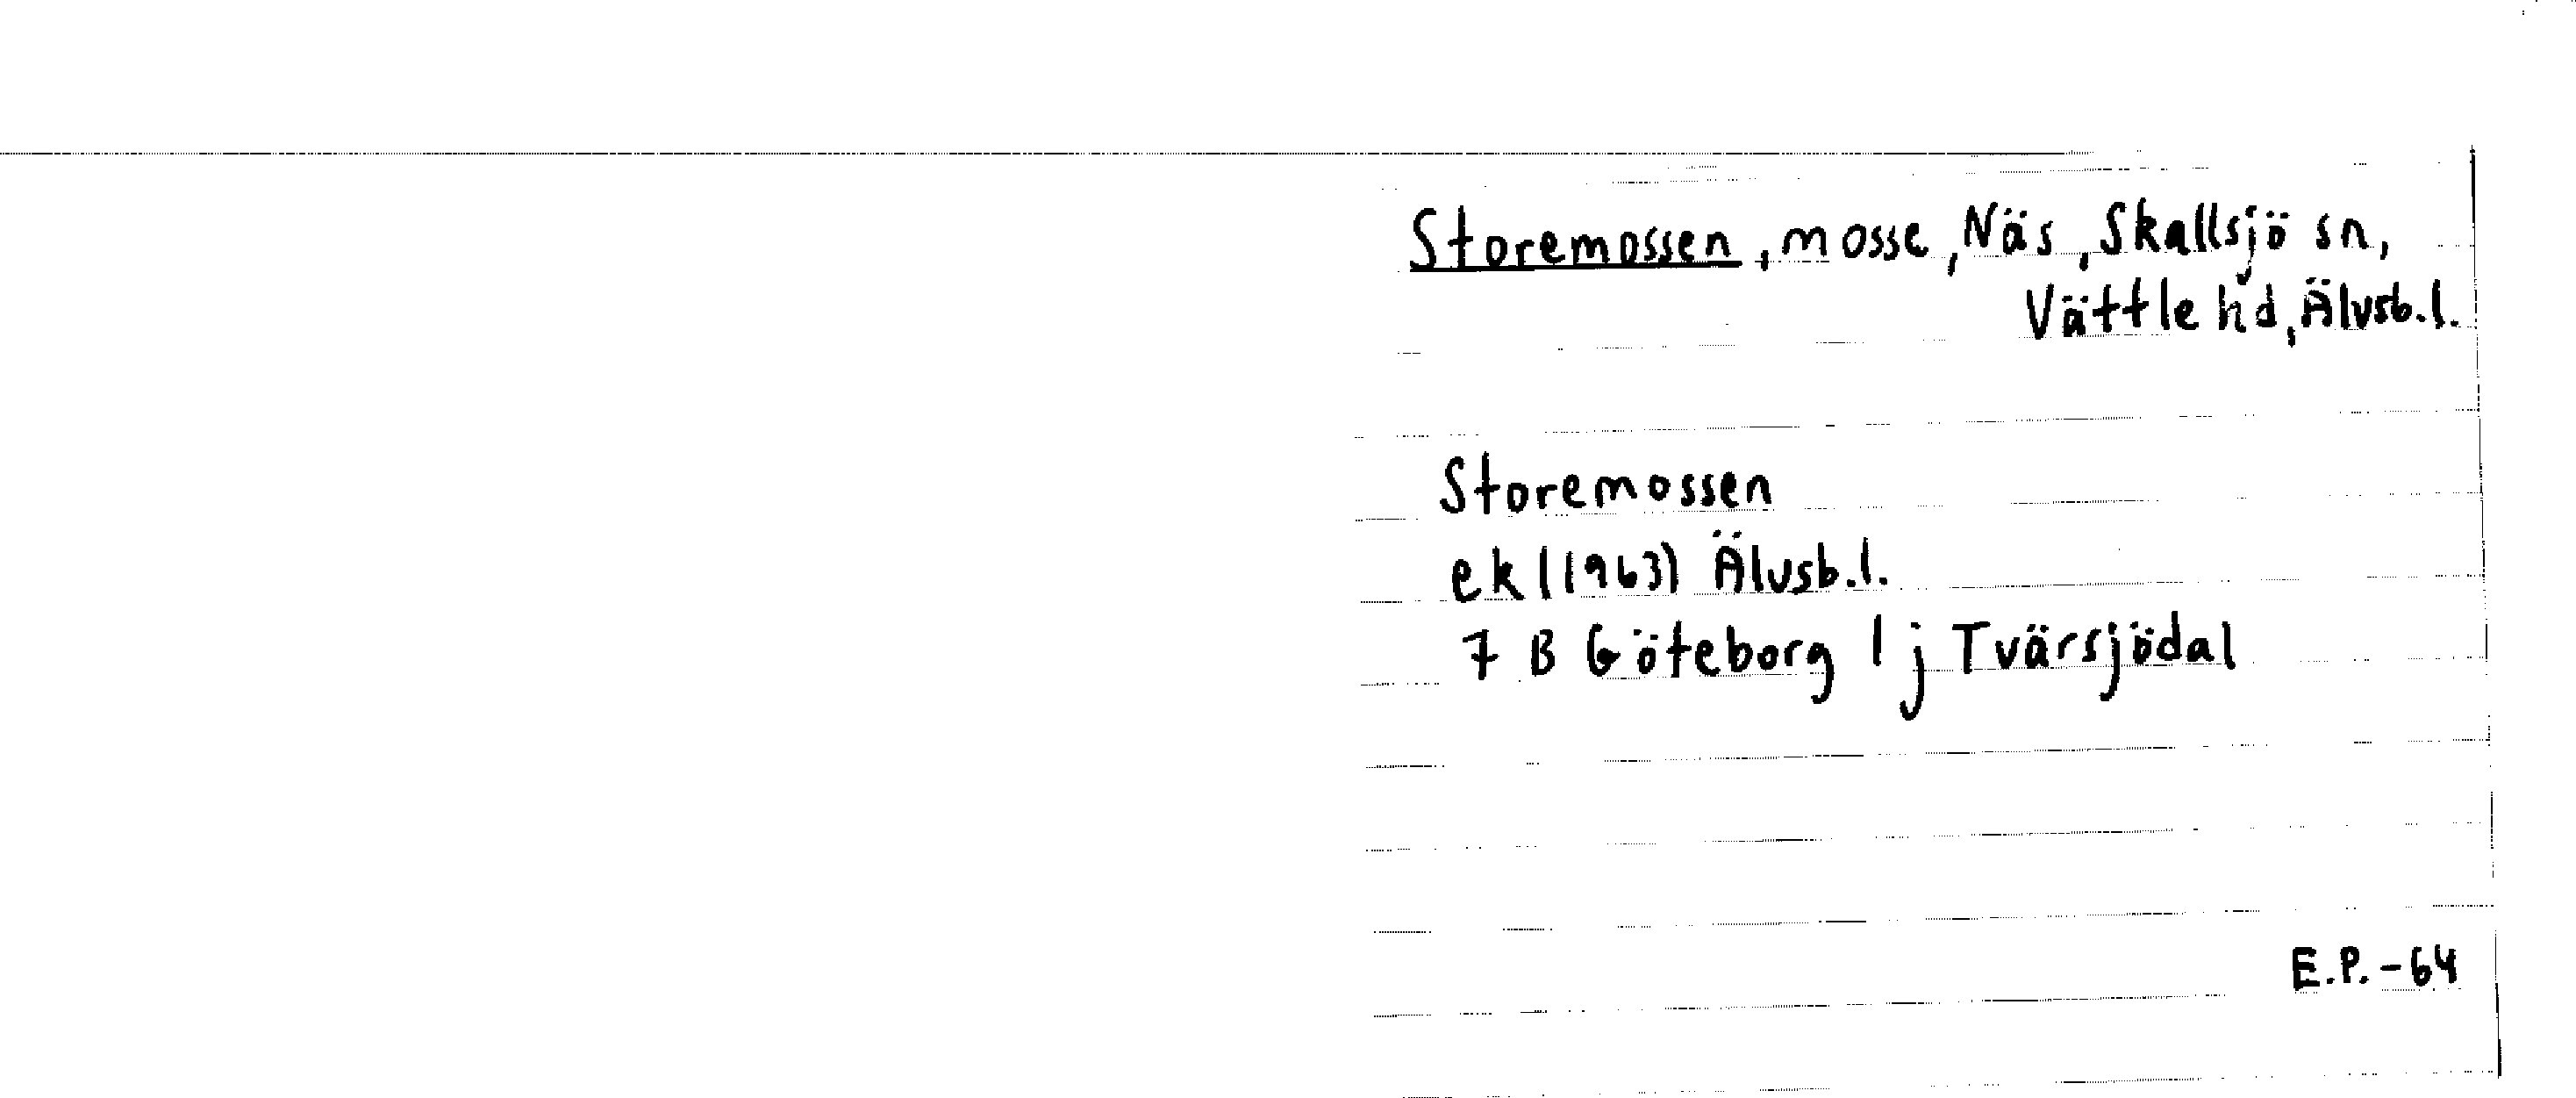 Storemossen, mosse, Näs, Skallsjö sn,
Vättle hd, Älvsb.l.
Storemossen
ek (1963) Älvsb.l.
7 B Göteborg 1 j Tvärsjödal
E.P.-64